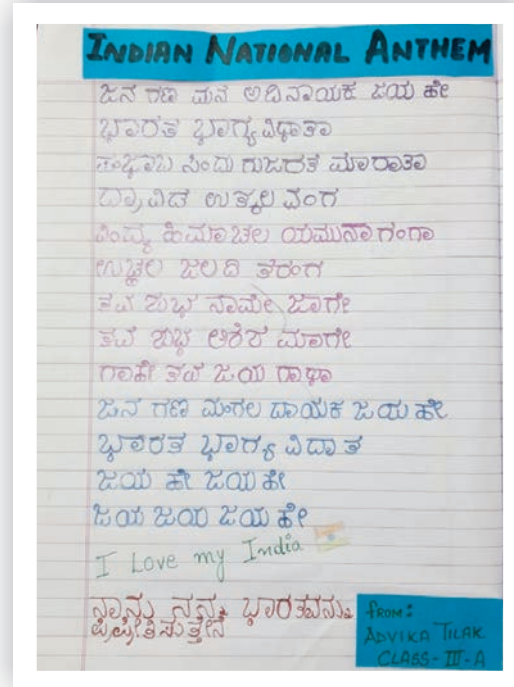 INDIAN NATIONAL ANTHEM
ಜನ ಗಣ ಮನ ಅದಿನಾಯಕ ಜಯ ಹೇ
ಭಾರತ ಭಾಗ್ಯ ವಿಧಾತಾ
ಪಂಜಾಬ ಸಿಂದು ಗುಜರತ ಮಾರಾತಾ
ದ್ರಾವಿಡ ಉತ್ಕಲ ವಂಗ
ವಿಂದ್ಯ ಹಿಮಾಚಲ ಯಮುನಾ ಗಂಗಾ
ಉಚ್ಚಲ ಜಲದಿ ತರಂಗ
ತವ ಶುಭ ನಾಮೇ ಜಾಗೇ
ತವ ಶುಭ ಆಶಿಶ ಮಾಗೇ
ಗಾಹೇ ತವ ಜಯ ಗಾಥಾ
ಜನ ಗಣ ಮಂಗಲ ದಾಯಕ ಜಯ ಹೇ
ಭಾರತ ಭಾಗ್ಯ ವಿದಾತ
ಜಯ ಹೇ ಜಯ ಹೇ
ಜಯ ಜಯ ಜಯ ಹೇ
I Love my India
ನಾನು ನನ್ನ ಭಾರತವನ್ನು
ಪ್ರಿಪ್ರೀತಿಸುತ್ತೇನೆ
FROM:
ADVIKA TILAK
CLASS-III-A